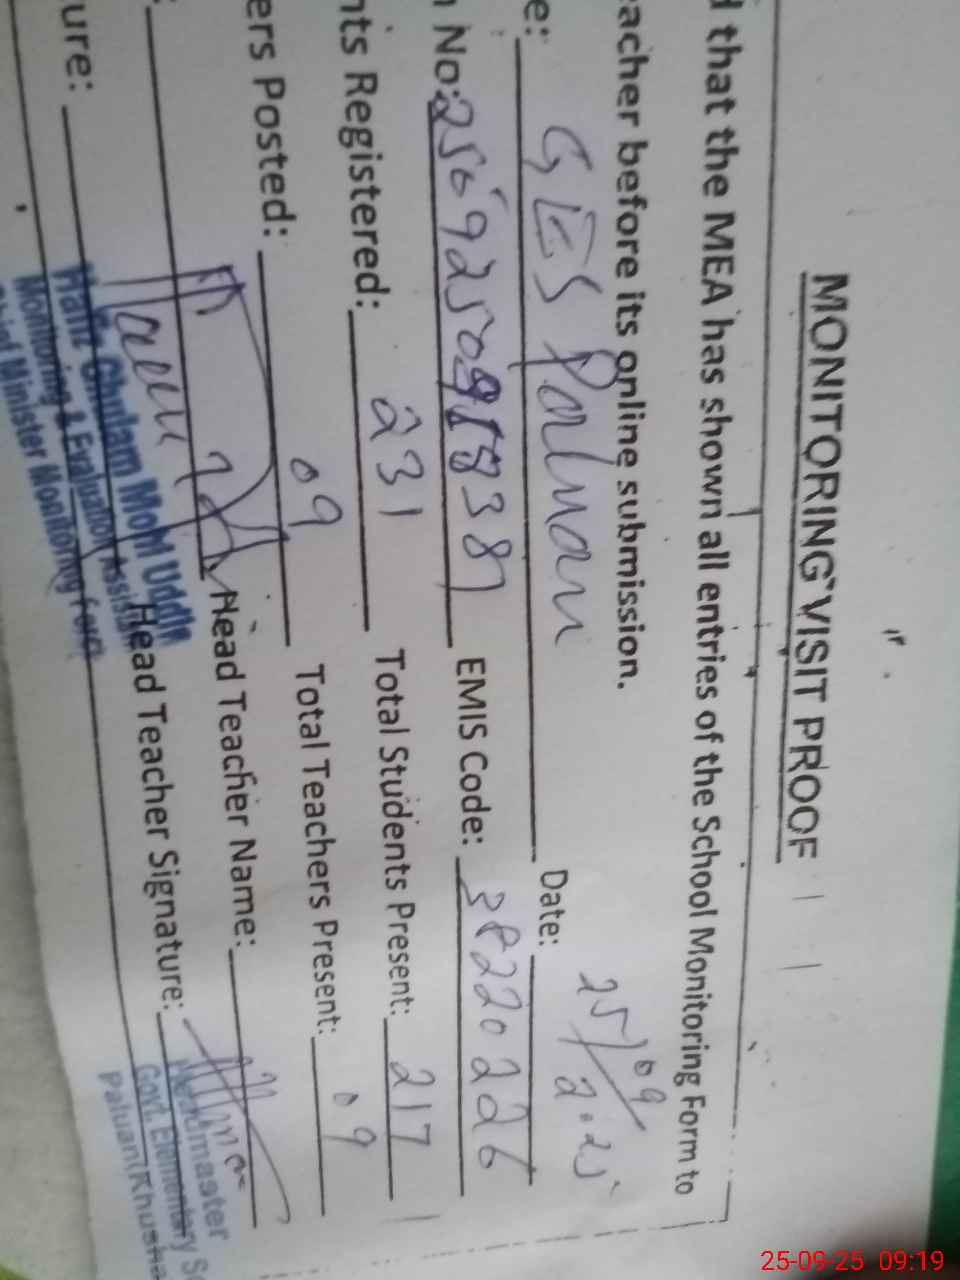 MONITORING VISIT PROOF
d that the MEA has shown all entries of the School Monitoring Form to
eacher before its online submission.
e: GES Paluan Date: 25/09/2025
n No: EMIS Code: 38220226
nts Registered: 231 Total Students Present: 217
ers Posted: 09 Total Teachers Present: 09
Head Teacher Name:
ure: Head Teacher Signature:
Hafiz Ghulam Mohi Uddin
Monitoring & Evaluation Assista
Chief Minister Monitoring Forc
Headmaster
Govt. Elementary S
Paluan(Khusha
25-09-25 09:19